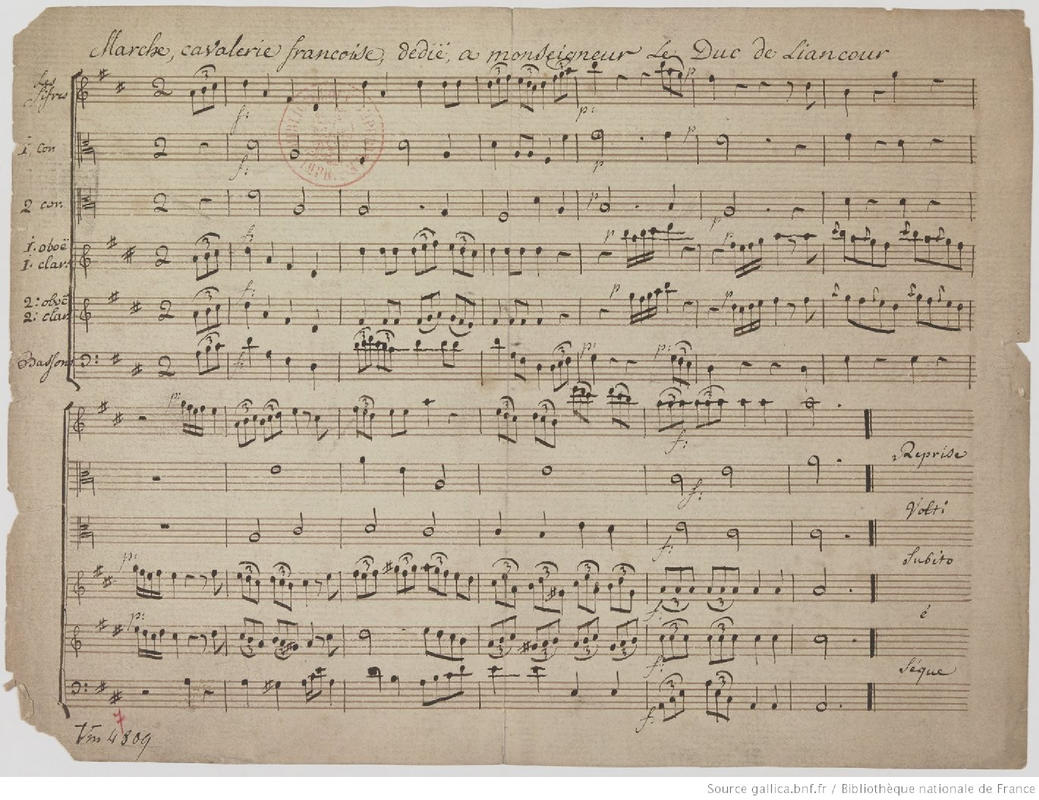 Marche, cavalerie francoise, dedië, a monseigneur Le Duc de Liancour
fifres
1. cor
2 cor.
1. oboë
1. clar:
2: oboë
2: clar
Bassons
Reprise
Volti
Subito
é
séque
Vm 4809
7
Source gallica.bnf.fr / Bibliothèque nationale de France